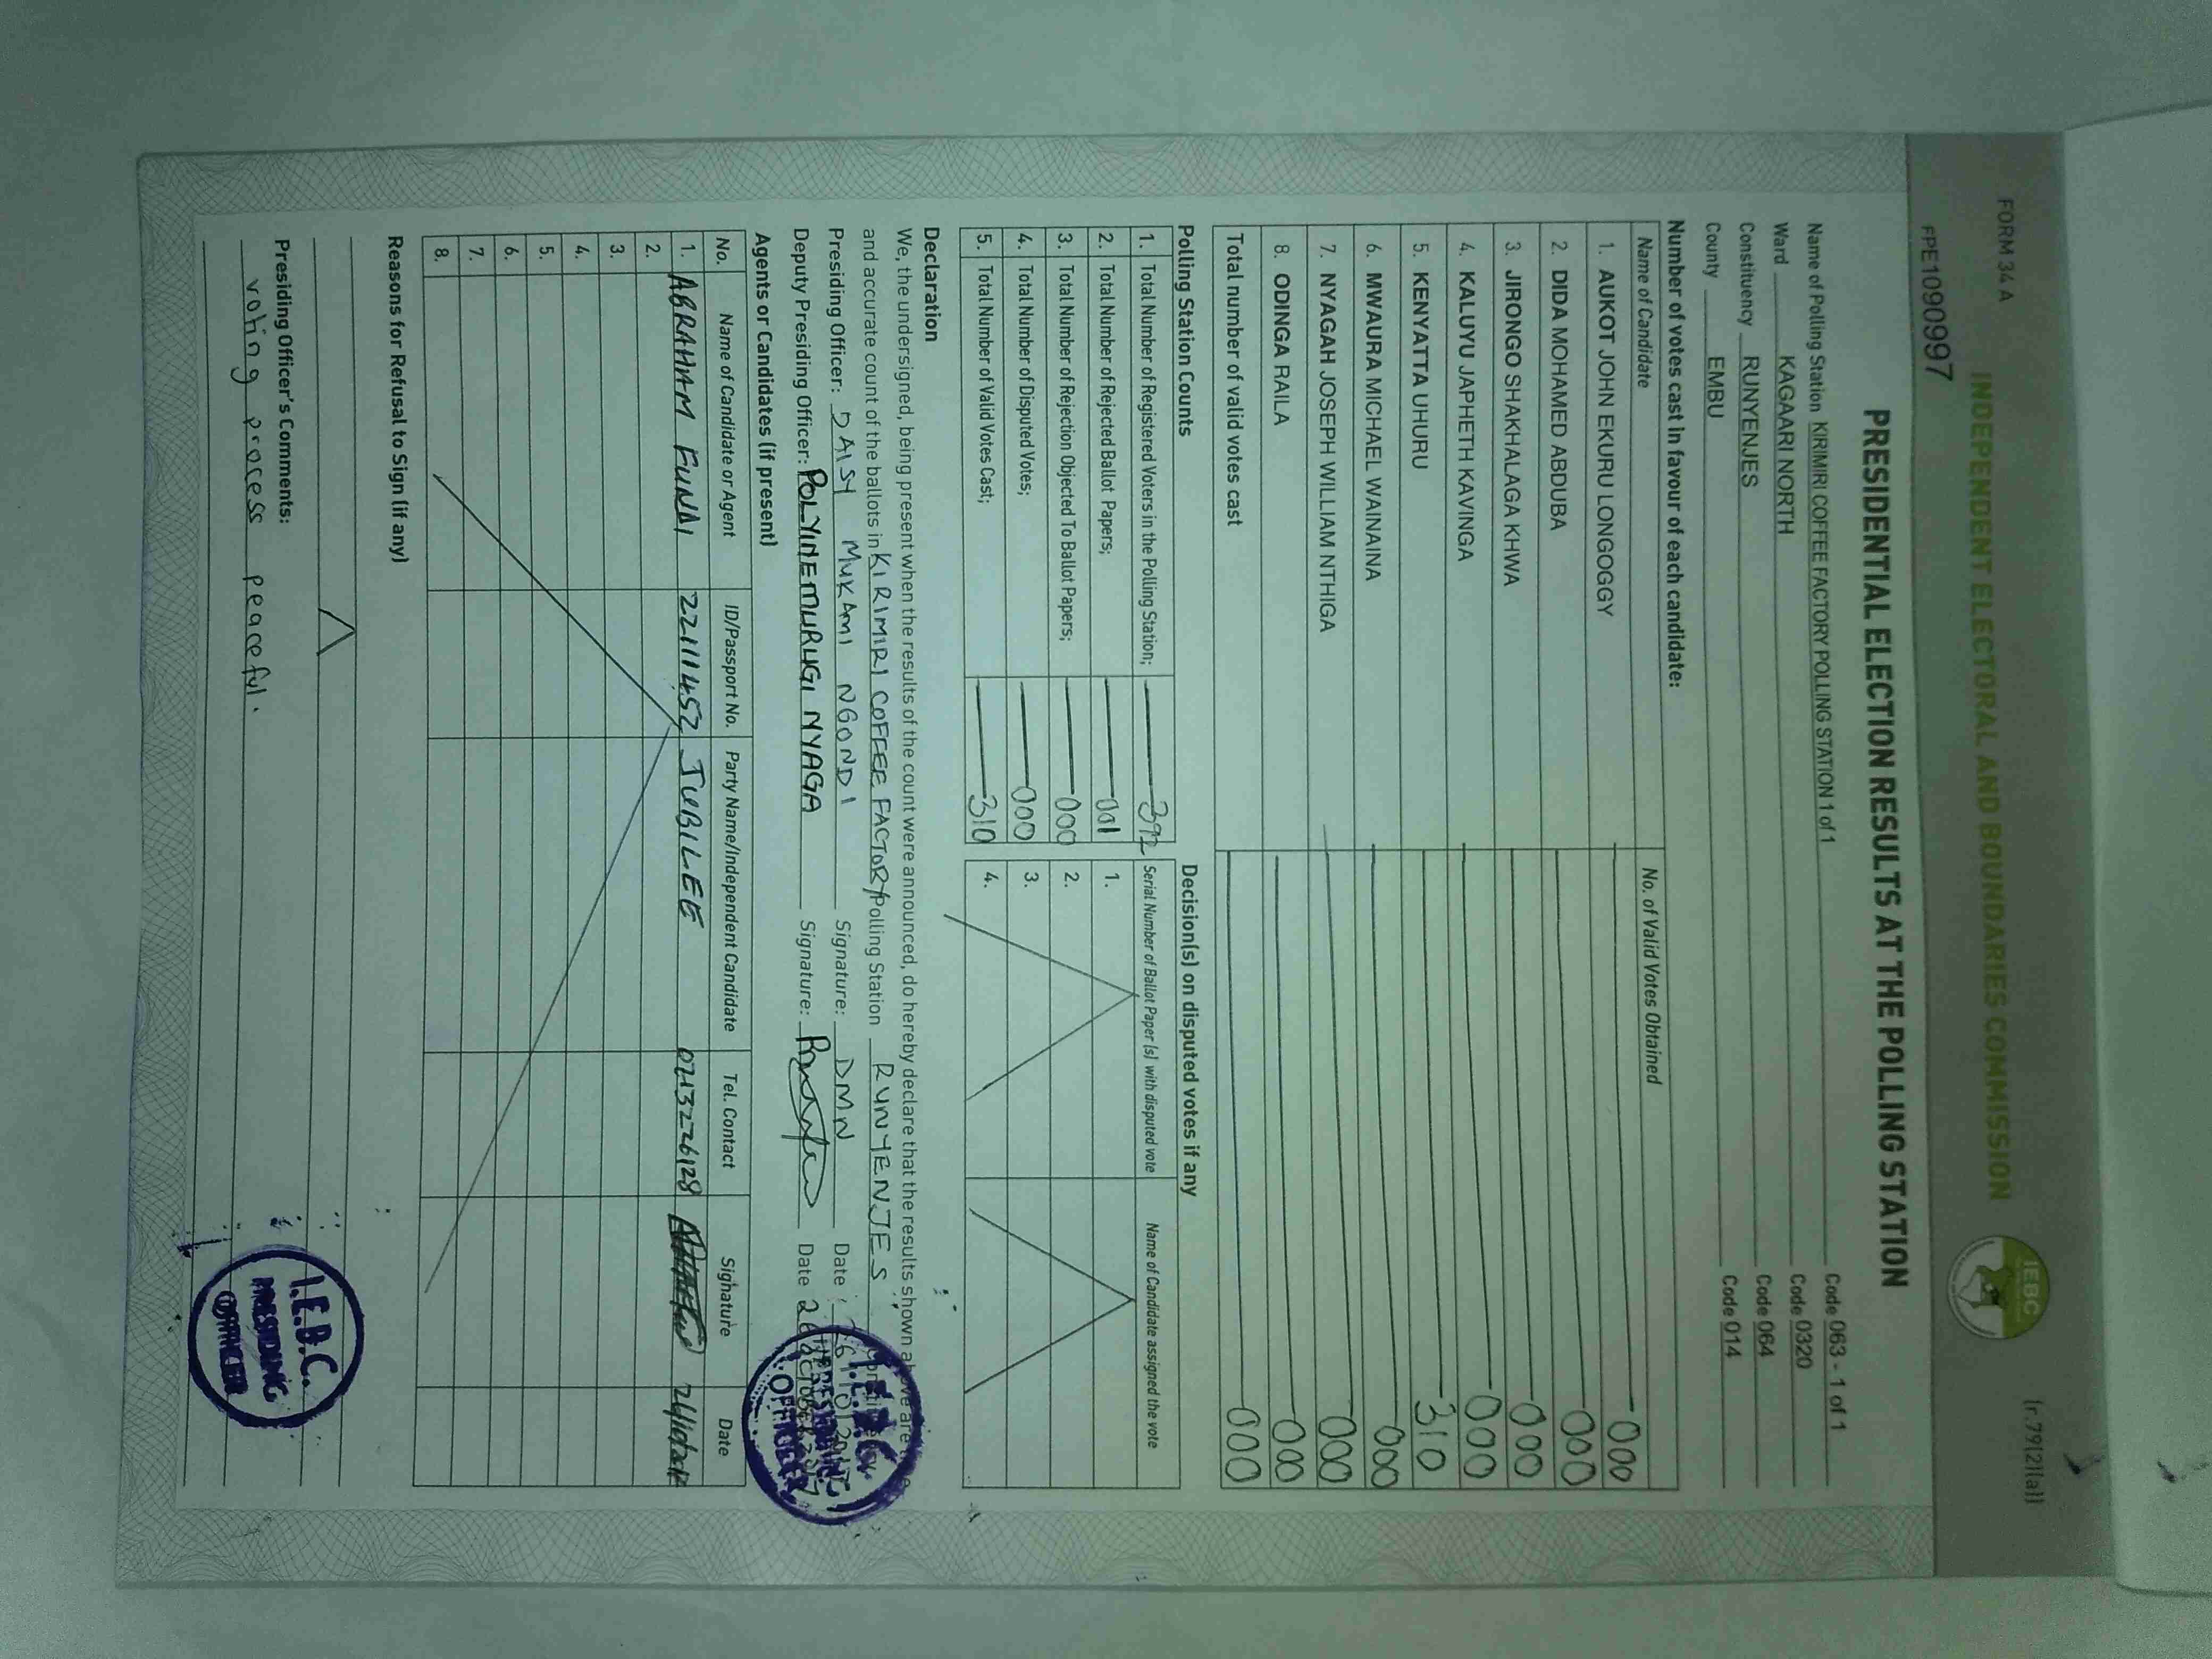 FORM 34 A
(r.79(2)(a))
INDEPENDENT ELECTORAL AND BOUNDARIES COMMISSION
IEBC
FPE1090997
PRESIDENTIAL ELECTION RESULTS AT THE POLLING STATION
Name of Polling Station KIRIMIRI COFFEE FACTORY POLLING STATION 1 of 1 Code 063 - 1 of 1
Ward KAGAARI NORTH Code 0320
Constituency RUNYENJES Code 064
County EMBU Code 014
Number of votes cast in favour of each candidate:
Name of Candidate No. of Valid Votes Obtained
1. AUKOT JOHN EKURU LONGOGGY 000
2. DIDA MOHAMED ABDUBA 000
3. JIRONGO SHAKHALAGA KHWA 000
4. KALUYU JAPHETH KAVINGA 000
5. KENYATTA UHURU 310
6. MWAURA MICHAEL WAINAINA 000
7. NYAGAH JOSEPH WILLIAM NTHIGA 000
8. ODINGA RAILA 000
Total number of valid votes cast 000
Polling Station Counts
1. Total Number of Registered Voters in the Polling Station; 392
2. Total Number of Rejected Ballot Papers; 001
3. Total Number of Rejection Objected To Ballot Papers; 000
4. Total Number of Disputed Votes; 000
5. Total Number of Valid Votes Cast; 310
Decision(s) on disputed votes if any
Serial Number of Ballot Paper (s) with disputed vote Name of Candidate assigned the vote
1.
2.
3.
4.
Declaration
We, the undersigned, being present when the results of the count were announced, do hereby declare that the results shown above are
and accurate count of the ballots in KIRIMIRI COFFEE FACTORY Polling Station RUNYENJES
Presiding Officer: DAISY MUKAMI NGONDI Signature: DMN Date:
Deputy Presiding Officer: POLYINE MURUGI NYAGA Signature: Date
I.E.B.C.
PRESIDING
OFFICER
Agents or Candidates (if present)
No. Name of Candidate or Agent ID/Passport No. Party Name/Independent Candidate Tel. Contact Signature Date
1. ABRAHAM FUNDI 22111452 JUBILEE 0713226128
2.
3.
4.
5.
6.
7.
8.
Reasons for Refusal to Sign (if any)
Presiding Officer's Comments:
voting process peaceful.
I.E.B.C.
PRESIDING
OFFICER